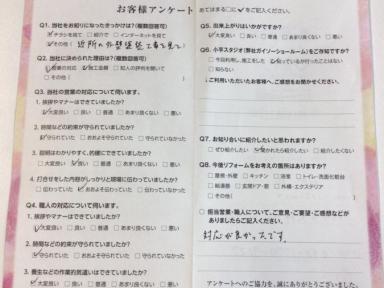 お客様アンケート あてはまる□に✓をご記入ください。
Q1. 当社をお知りになったきっかけは?(複数回答可)
□チラシを見て □紹介で □インターネットを見て
☑その他( 近所の外壁塗装工事を見て )
Q2. 当社に決められた理由は?(複数回答可)
☑営業の対応 ☑施工金額 □知人の評判を聞いて
□その他( )
Q3. 当社の営業の対応について伺います。
1. 挨拶やマナーはできていましたか?
☑大変良い □良い □普通 □あまり良くない □悪い
2. 時間などの約束が守られていましたか?
☑守られていた □おおむね守られていた □守られていなかった
3. 説明はわかりやすく、的確にできていましたか?
☑大変良い □良い □普通 □あまり良くない □悪い
4. 打合せした内容がしっかりと現場に伝わっていましたか?
□伝わっていた ☑おおよそ伝わっていた □伝わっていなかった
Q4. 職人の対応について伺います。
1. 挨拶やマナーはできていましたか?
☑大変良い □良い □普通 □あまり良くない □悪い
2. 時間などの約束が守られていましたか?
☑守られていた □おおむね守られていた □守られていなかった
3. 養生などの作業的気遣いはできていましたか?
☑大変良い □良い □普通 □あまり良くない □悪い
Q5. 出来上がりはいかがですか?
☑大変良い □良い □普通 □あまり良くない □悪い
Q6. 小平スタジオ(弊社ガイソーショールーム)をご存知ですか?
□今回利用し、施工をした ☑知っているが行ったことはない
□知らない
ご利用いただいたお客様へ、ご感想をお聞かせください。
Q7. お知り合いに紹介したいと思われますか?
□ぜひ紹介したい ☑聞かれたら紹介したい □紹介したくない
Q8. 今後リフォームをお考えの箇所はありますか?
□屋根・外壁 □キッチン □浴室 □トイレ・洗面化粧台
□給湯器 □玄関ドア・窓 □外構・エクステリア
□その他( )
○ 担当営業・職人について、ご意見・ご要望・ご感想などが
ありましたらご記入ください。
対応が良かったです。
アンケートへのご協力を、誠にありがとうございました。